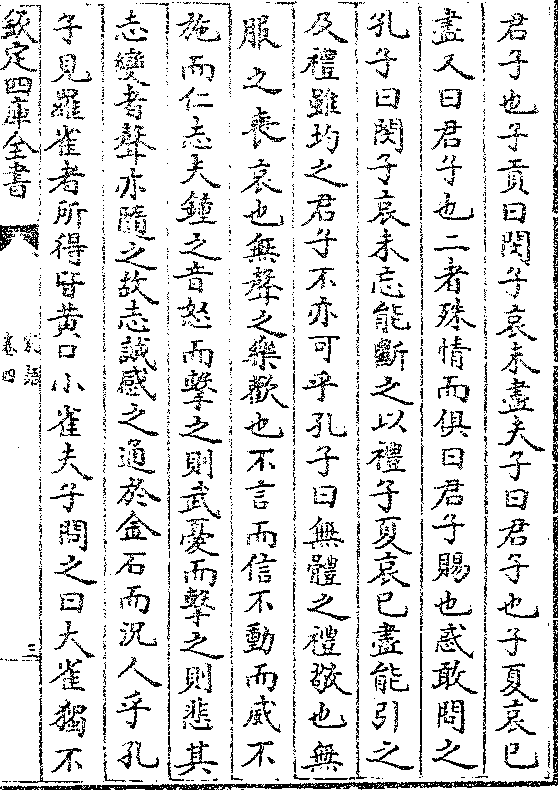 君子也子貢曰閔子哀未盡夫子曰君子也子夏哀已
盡又曰君子也二者殊情而俱曰君子賜也惑敢問之
孔子曰閔子哀未忘能斷之以禮子夏哀已盡能引之
及禮雖均之君子不亦可乎孔子曰無體之禮敬也無
服之喪哀也無聲之樂歡也不言而信不動而威不
施而仁志夫鐘之音怒而擊之則武憂而擊之則悲其
志變者聲亦隨之故志誠感之通於金石而況人乎孔
子見羅雀者所得皆黄口小雀夫子問之曰大雀獨不
欽定四庫全書
家語
卷四
三